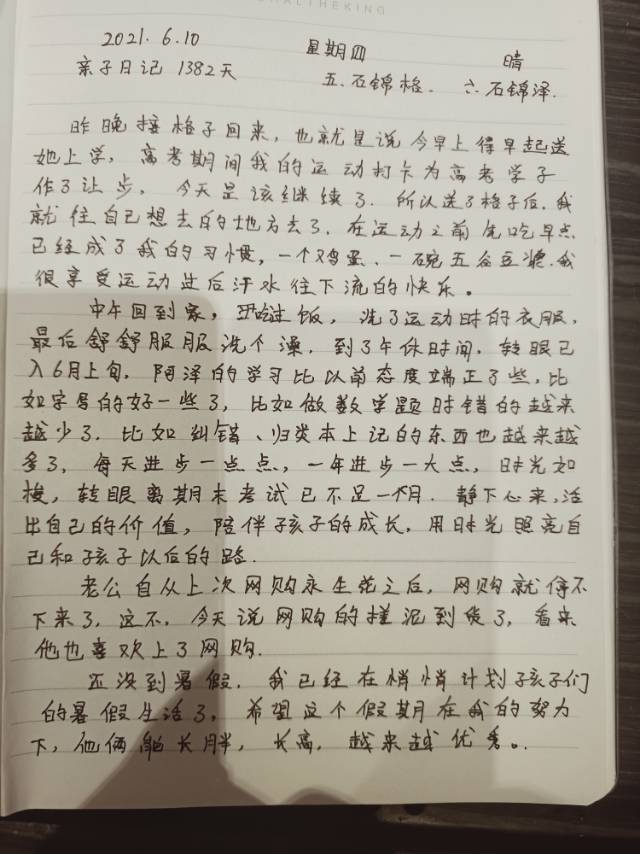 HALTHEKING
2021.6.10 星期四 晴
亲子日记 1382天 五.石锦格. 六.石锦泽.
昨晚接格子回来，也就是说今早上得早起送
她上学，高考期间我的运动打卡为高考学子
作了让步，今天是该继续了．所以送了格子后，我
就往自己想去的地方去了．在运动之前先吃早点
已经成了我的习惯，一个鸡蛋、一碗五谷豆浆．我
很享受运动过后汗水往下流的快乐。
中午回到家，吃过饭，洗了运动时的衣服，
最后舒舒服服洗个澡．到了午休时间．转眼已
入6月上旬．阿泽的学习比以前态度端正了些，比
如字写的好一些了，比如做数学题时错的越来
越少了．比如纠错、归类本上记的东西也越来越
多了，每天进步一点点，一年进步一大点，时光如
梭，转眼离期末考试已不足一个月．静下心来，活
出自己的价值，陪伴孩子的成长，用时光照亮自
己和孩子以后的路．
老公自从上次网购永生花之后，网购就停不
下来了，这不，今天说网购的搓泥到货了，看来
他也喜欢上了网购．
还没到暑假．我已经在悄悄计划孩子们
的暑假生活了，希望这个假期在我的努力
下，他俩能长胖，长高，越来越优秀。．